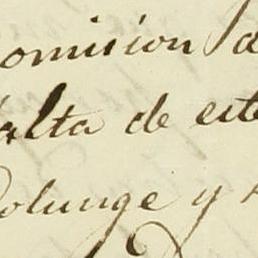 omision
falta de este
olunge y